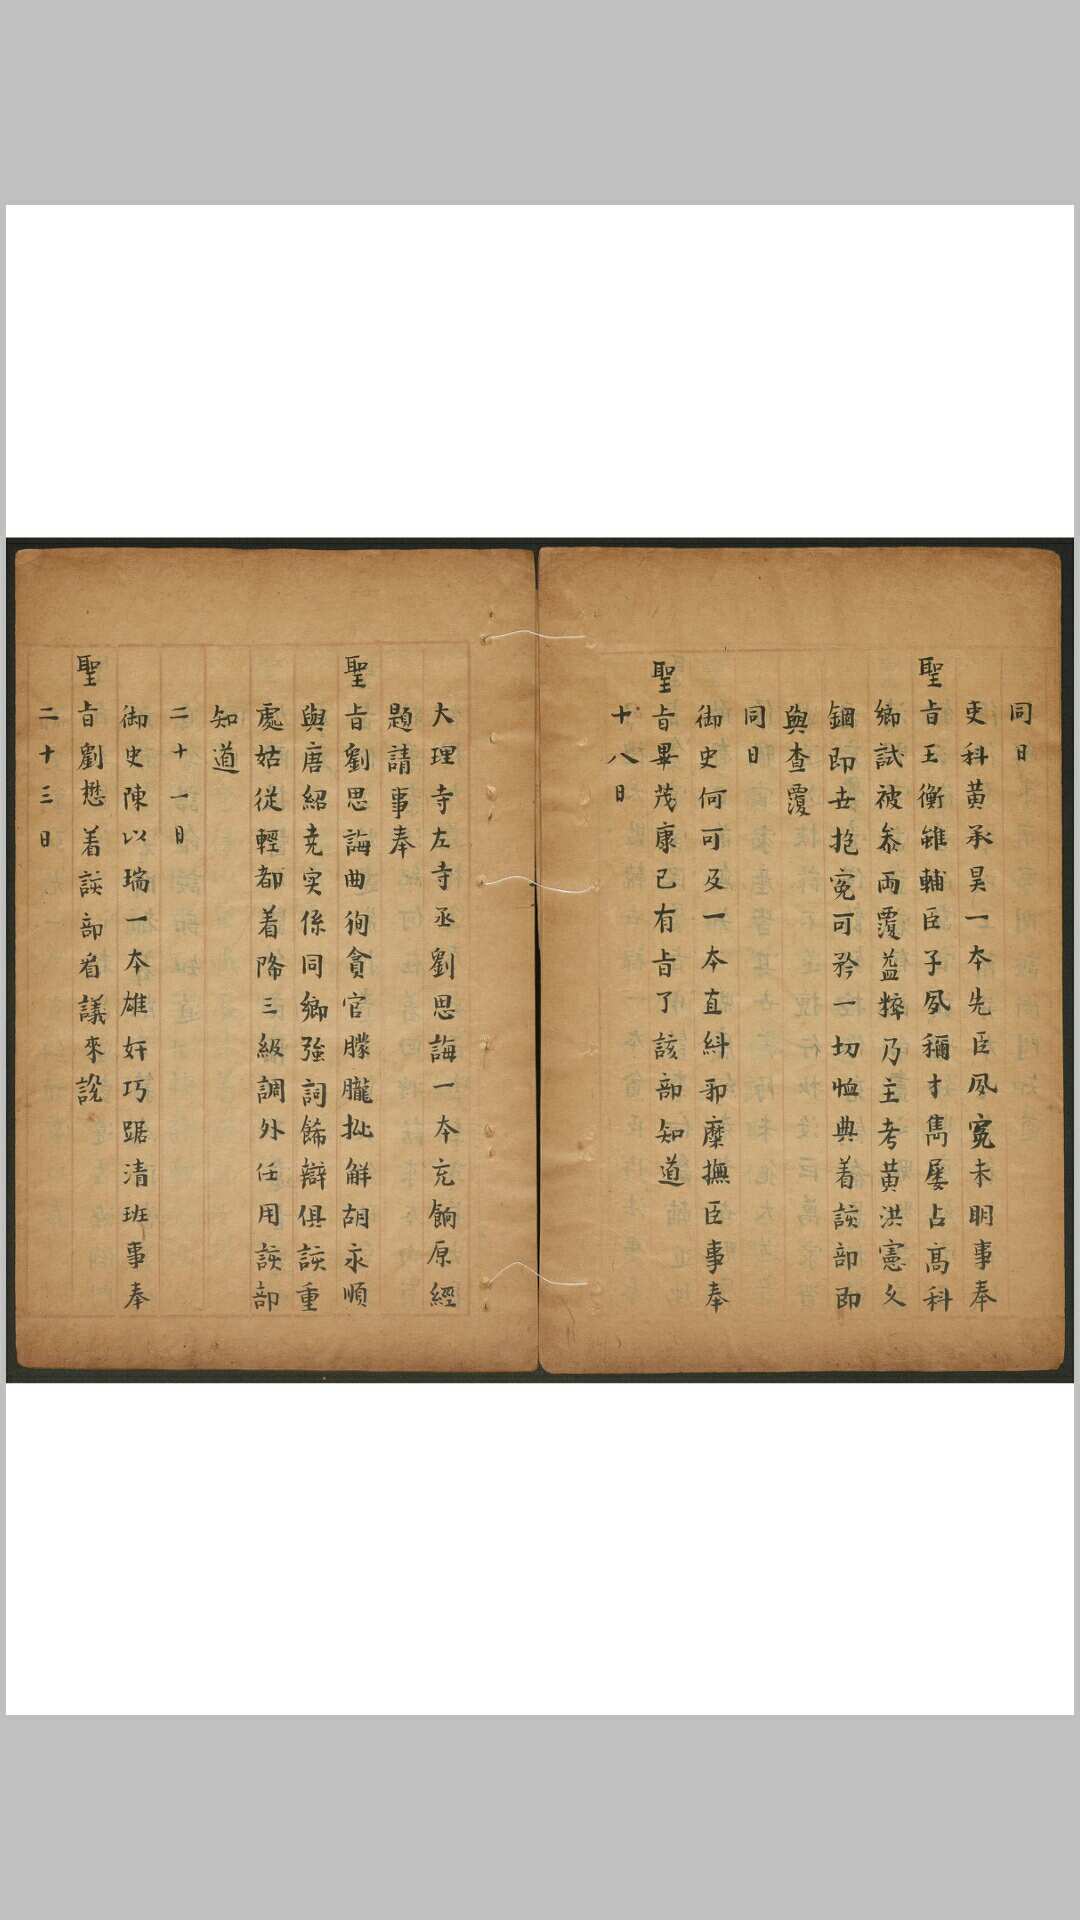 同日
吏科黄承昊一本先臣夙寃未明事奉
聖旨王衡雖輔臣子夙稱才雋屢占髙科
鄉試被叅兩覆益粹乃主考黄洪憲父
錮即丗抱寃可矜一切恤典着該部即
與查覆
同日
御史何可及一本直糾卭糜撫臣事奉
聖旨畢茂康已有旨了該部知道
十八日
大理寺左寺丞劉思誨一本充餉原經
題請事奉
聖旨劉思誨曲徇貪官朦朧批觧胡永順
與唐紹尭实係同鄉强詞餙辯俱該重
處姑従輕都着降三級調外任用該部
知道
二十一日
御史陳以瑞一本雄奸巧踞清班事奉
聖旨劉懋着該部看議來說
二十三日